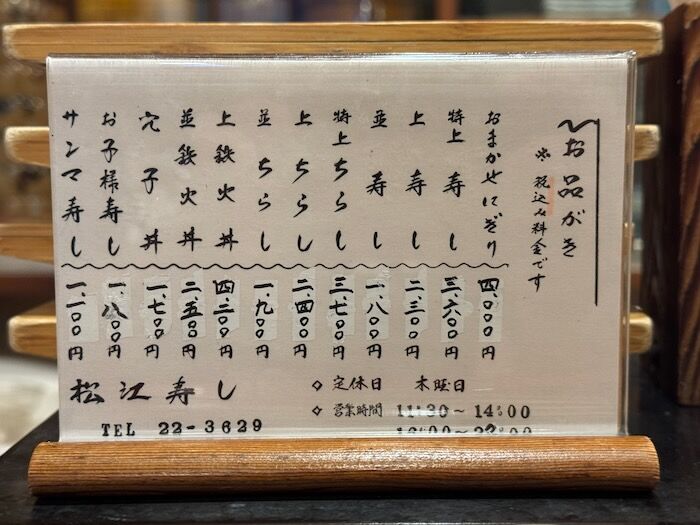 お品がき
※税込み料金です
おまかせにぎり 四、〇〇〇円
特上寿し 三、六〇〇円
上寿し 二、三〇〇円
並寿し 一、八〇〇円
特上ちらし 三、七〇〇円
上ちらし 二、四〇〇円
並ちらし 一、九〇〇円
上鉄火丼 四、二〇〇円
並鉄火丼 二、五〇〇円
穴子丼 一、七〇〇円
お子様寿し 一、八〇〇円
サンマ寿し 一、一〇〇円
◇定休日 木曜日
◇営業時間 11:30～14:00
松江寿し
TEL 22-3629